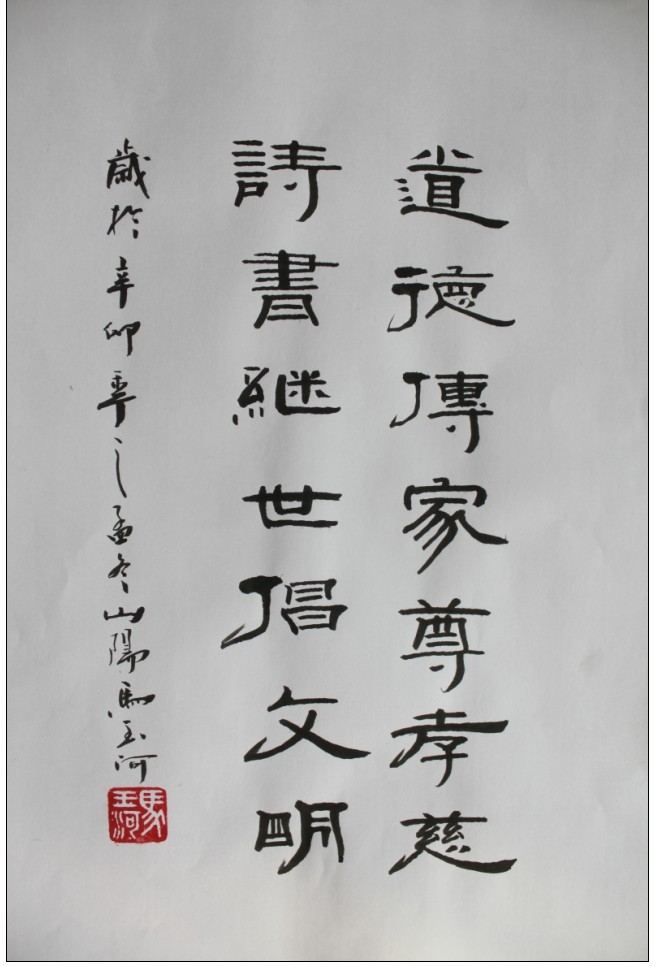 道德傳家尊孝慈
詩書継世倡文明
歲於辛卯季之孟冬山陽馬玉河
馬玉河